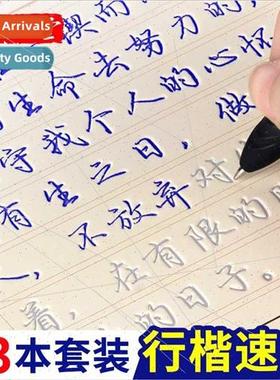 Arrivals
ty Goods
锲而
生命去努力的,
守我个人的心怀
有生之日,做
人,不放弃对生
着,在有限的日
的日子。
3本套装 行楷速